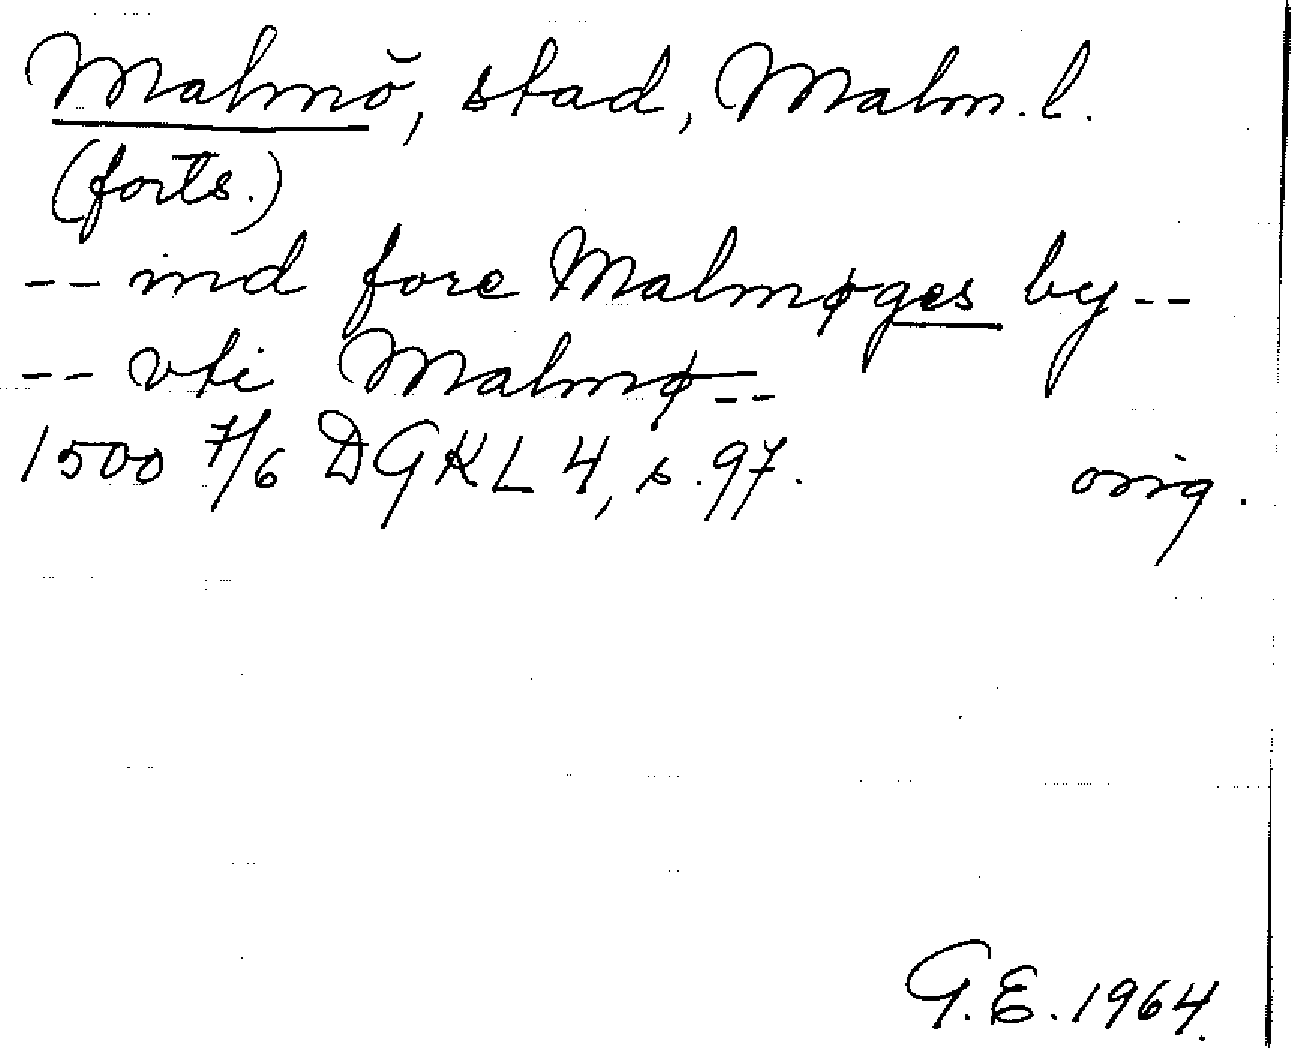 Malmö, stad, Malm. l.
(forts.)
-- ind fore Malmøges by --
-- vti Malmø --
1500 7/6 DGKL 4, s. 97. orig.
G.E. 1964.